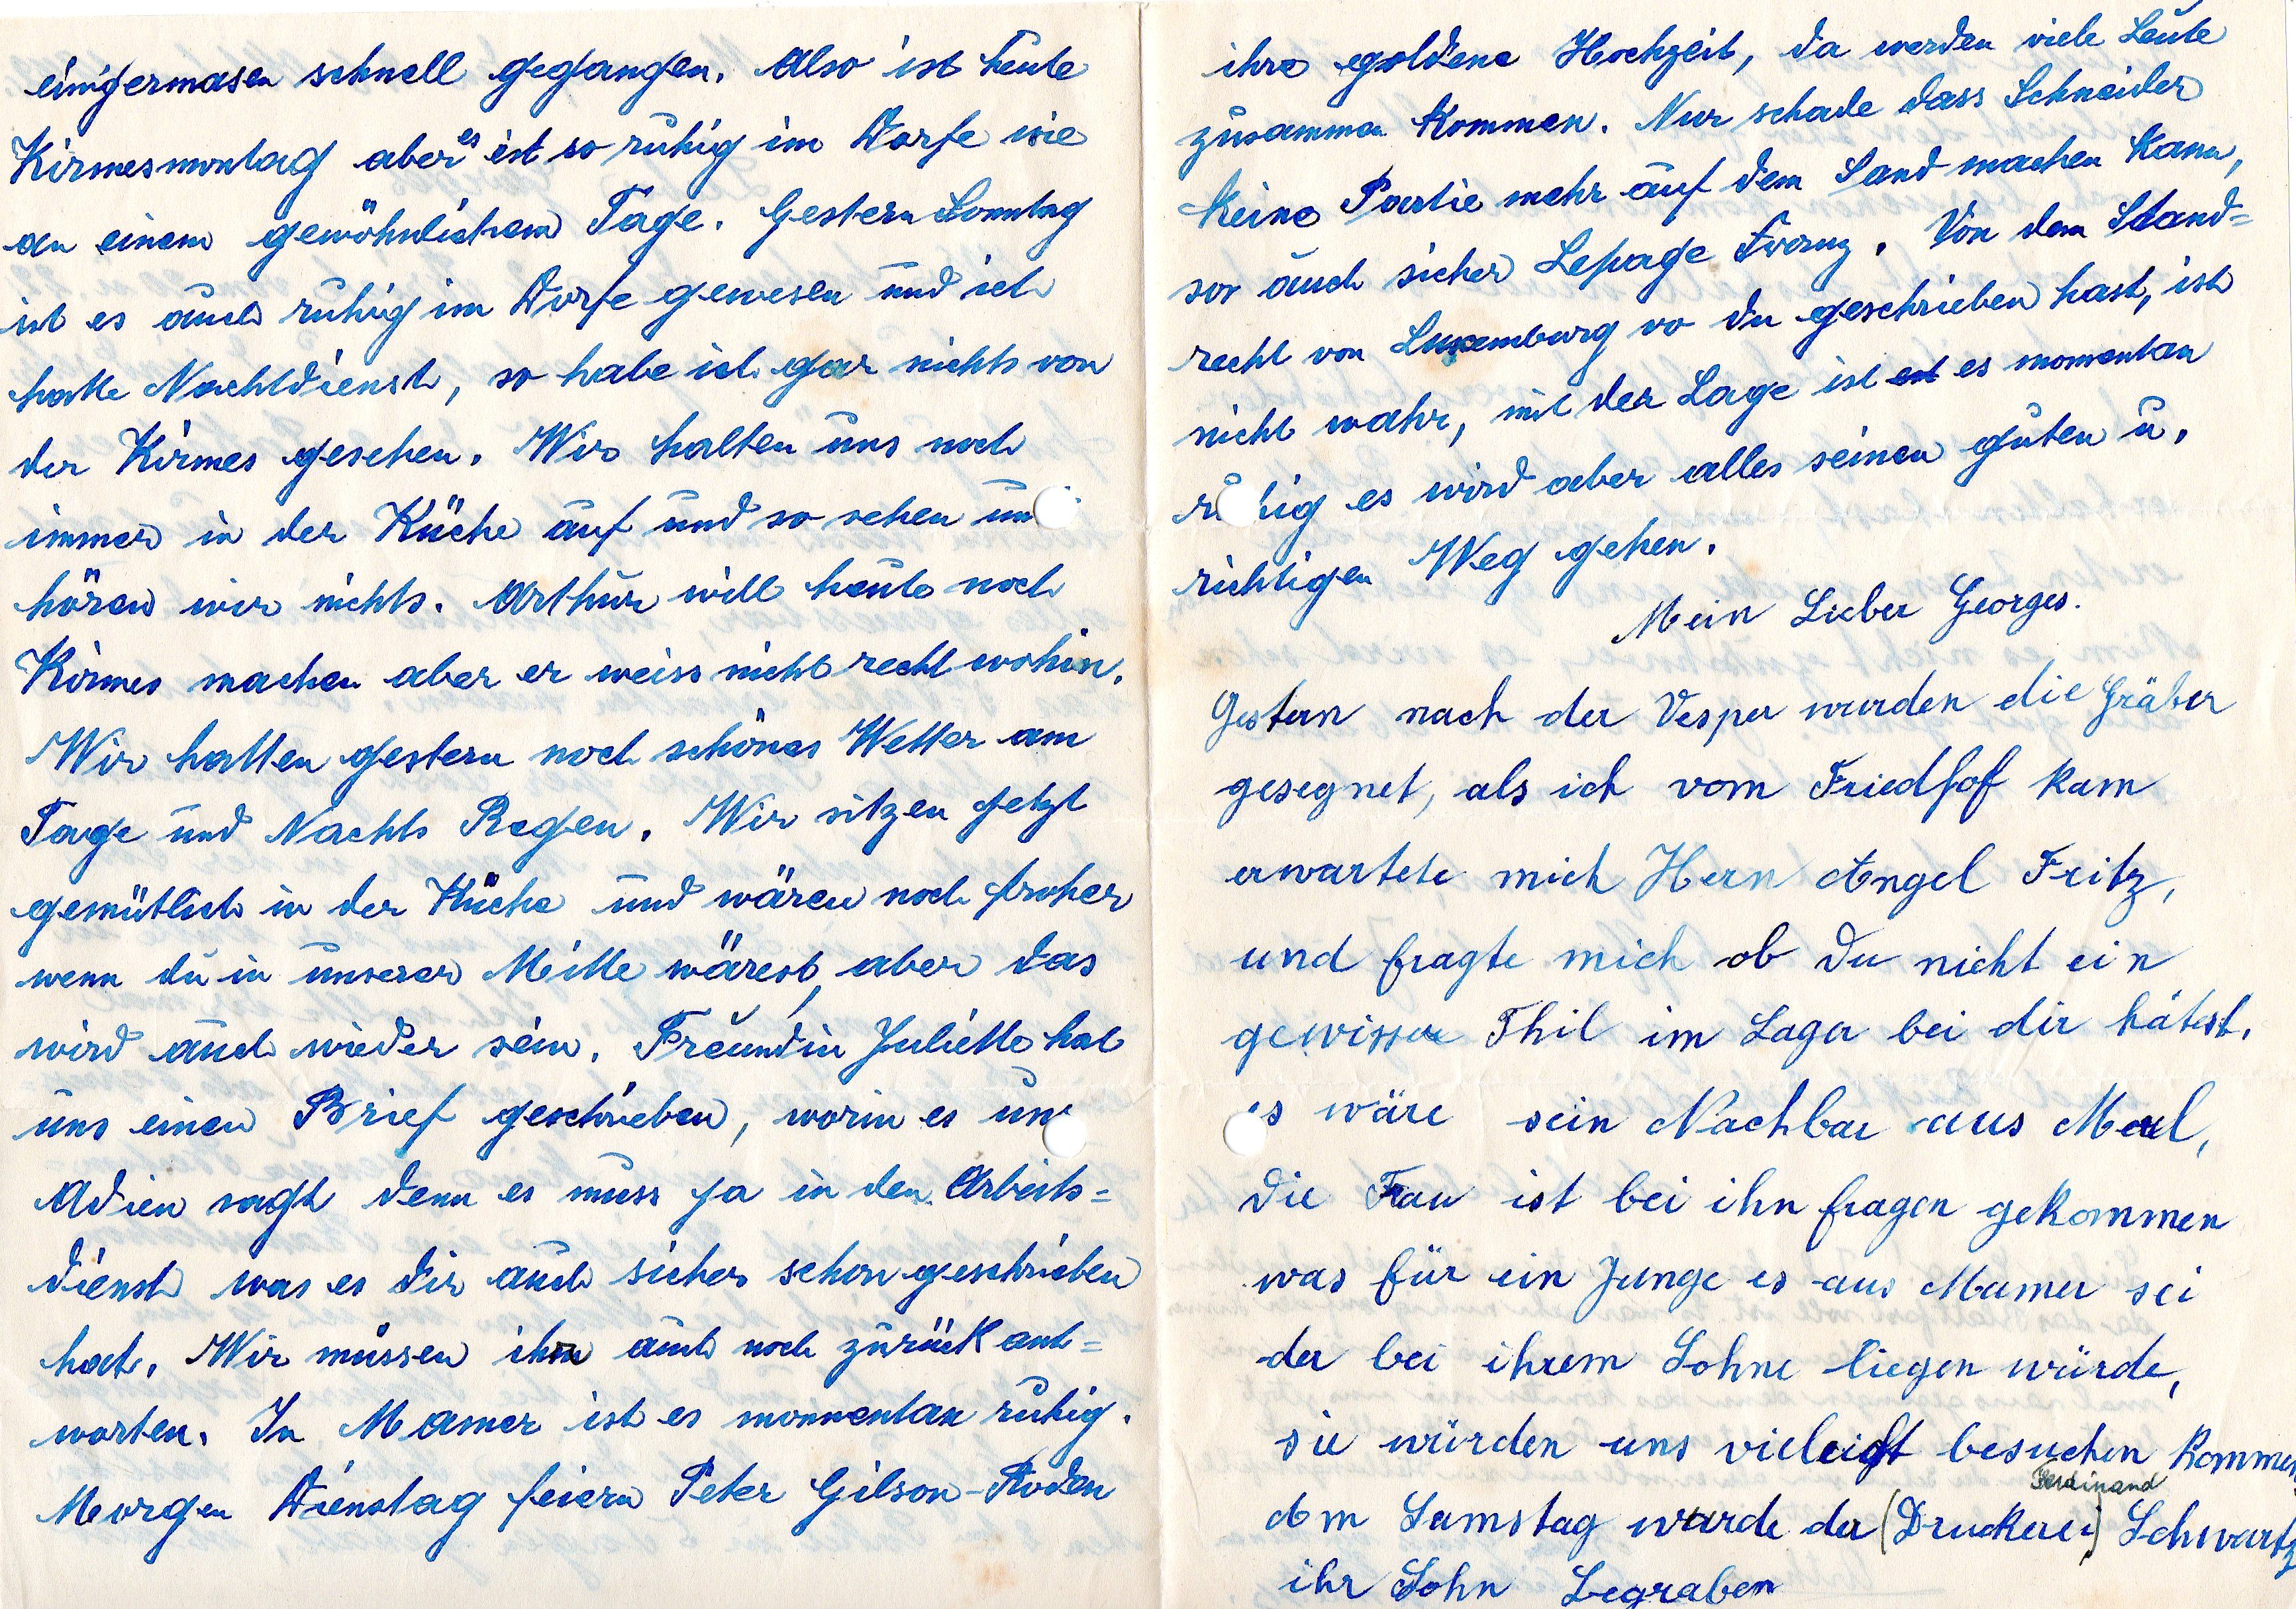 einigermasen schnell gegangen. Also ist heute
Kirmesmontag aber es ist so ruhig im Dorfe wie
an einem gewöhnlichem Tage. Gestern Sonntag
ist es auch ruhig im Dorfe gewesen und ich
hatte Nachtdienst, so habe ich gar nichts von
der Kirmes gesehen. Wir halten uns noch
immer in der Küche auf und so sehen un
hören wir nichts. Arthur will heute noch
Kirmes machen aber er weiss nicht recht wohin.
Wir hatten gestern noch schönes Wetter am
Tage und Nachts Regen. Wir sitzen jetzt
gemütlich in der Küche und wären noch froher
wenn du in unserer Mitte wärest, aber das
wird auch wieder sein. Freundin Juliette hat
uns einen Brief geschrieben, worin es un
Adieu sagt denn es muss ja in den Arbeits=
dienst was es dir auch sicher schon geschrieben
hat. Wir müssen ihm auch noch zurück ant=
worten. In Mamer ist es momentan ruhig.
Morgen Dienstag feiern Peter Gilson-Roden
ihre goldene Hochzeit, da werden viele Leute
zusammen kommen. Nur schade dass Schneider
keine Partie mehr auf dem Land machen kann,
so auch sicher Lepage Franz. Von dem Stand=
recht von Luxemburg vo du geschrieben hast, ist
nicht wahr, mit der Lage ist es momentan
ru hig es wird aber alles seinen guten u.
richtigen Weg gehen.
Mein Lieber Georges.
Gestern nach der Vesper wurden die Gräber
gesegnet, als ich vom Friedhof kam
erwartete mich Hern Angel Fritz,
und fragte mich ob du nicht ein
gewisser Thil im Lager bei dir hätest.
es wäre sein Nachbar aus Merl,
die Frau ist bei ihn fragen gekommen
was für ein Junge es aus Mamer sei
der bei ihrem Sohne liegen würde,
sie würden uns vieleicht besuchen kommen
Ferdinand
Am Samstag wurde der (Druckerei) Schwartz
ihr Sohn begraben